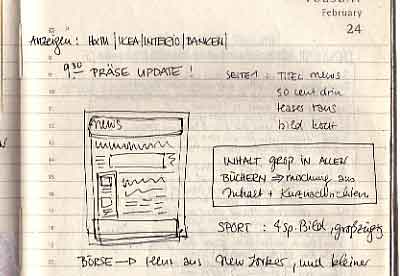 February
24
Anzeigen: H&M | IKEA | INTERIO | BANKEN |
9.30 PRÄSE UPDATE!
SEITE 1: TITEL news
50 cent drin
teaser raus
bild hoch
news
INHALT GESP. IN ALLEN
BÜCHERN → mischung aus
Inhalt + Kurznachrichten
SPORT: 4sp. Bild, großzügig
BÖRSE → rein aus New Yorker, und kleiner